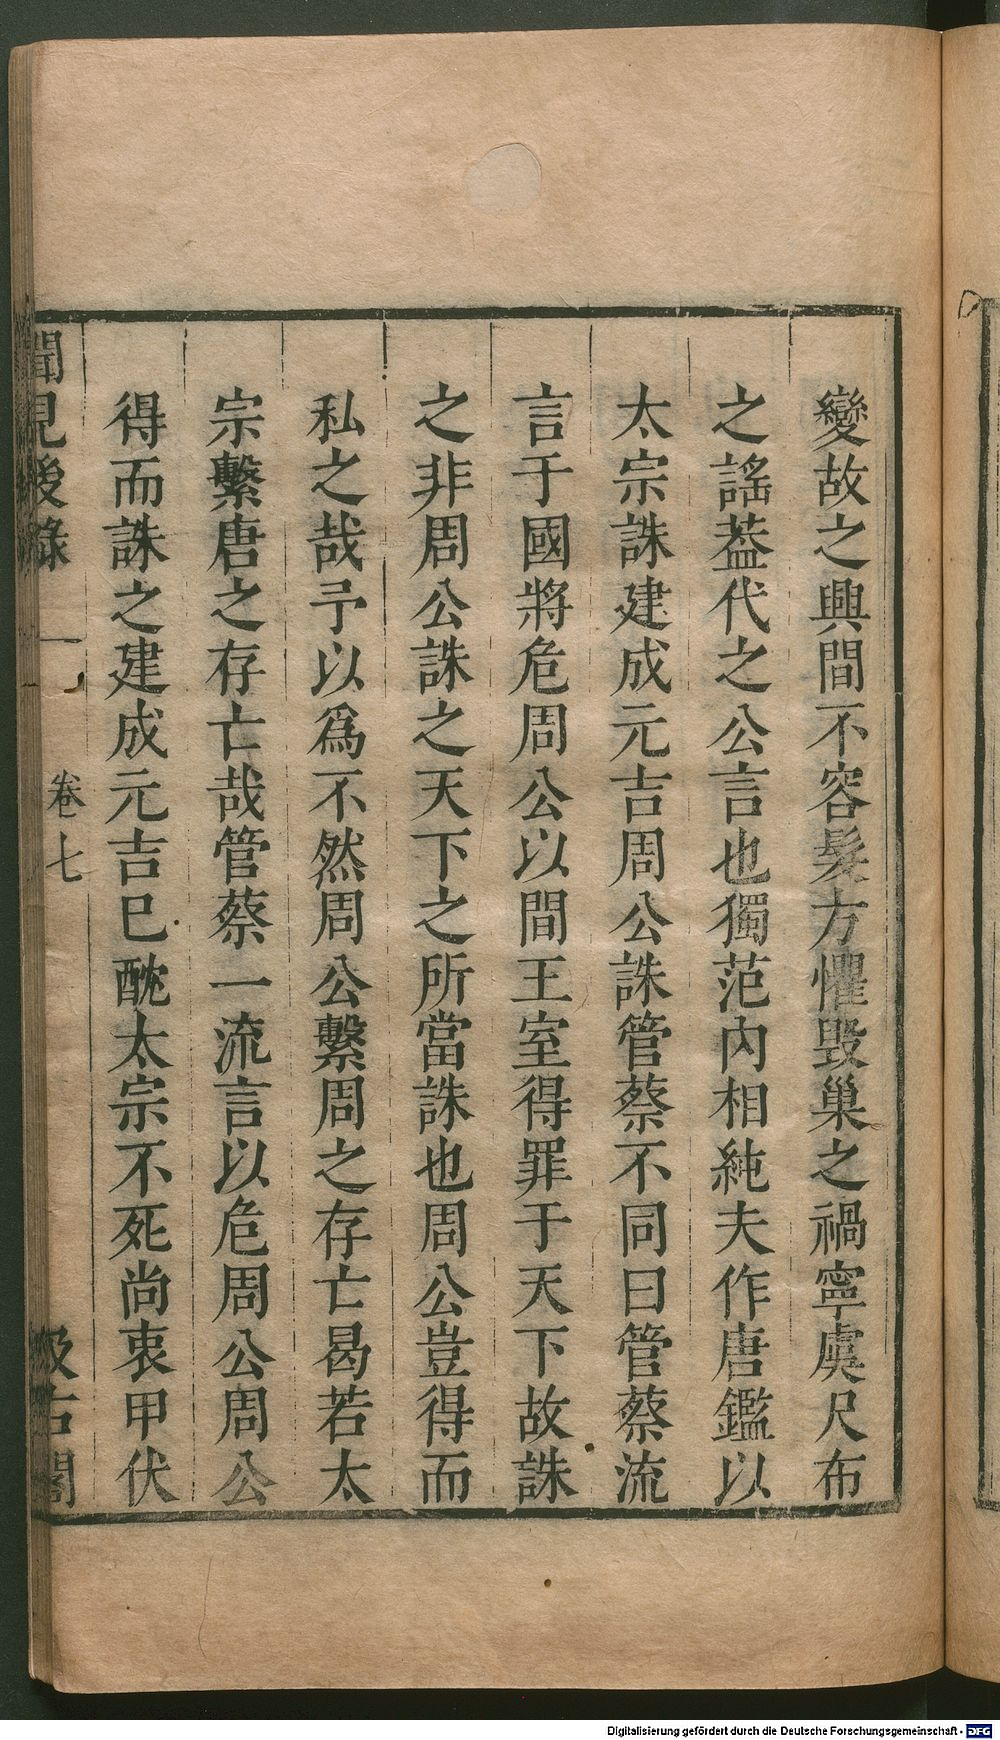 變故之興間不容髮方懼毀巢之禍寧虞尺布
之謠葢代之公言也獨范内相純夫作唐鑑以
太宗誅建成元吉周公誅管蔡不同曰管蔡流
言于國將危周公以間王室得罪于天下故誅
之非周公誅之天下之所當誅也周公豈得而
私之哉予以爲不然周公繫周之存亡曷若太
宗繫唐之存亡哉管蔡一流言以危周公周公
得而誅之建成元吉巳酖太宗不死尚衷甲伏
聞見後錄 卷七 汲古閣
Digitalisierung gefördert durch die Deutsche Forschungsgemeinschaft - DFG